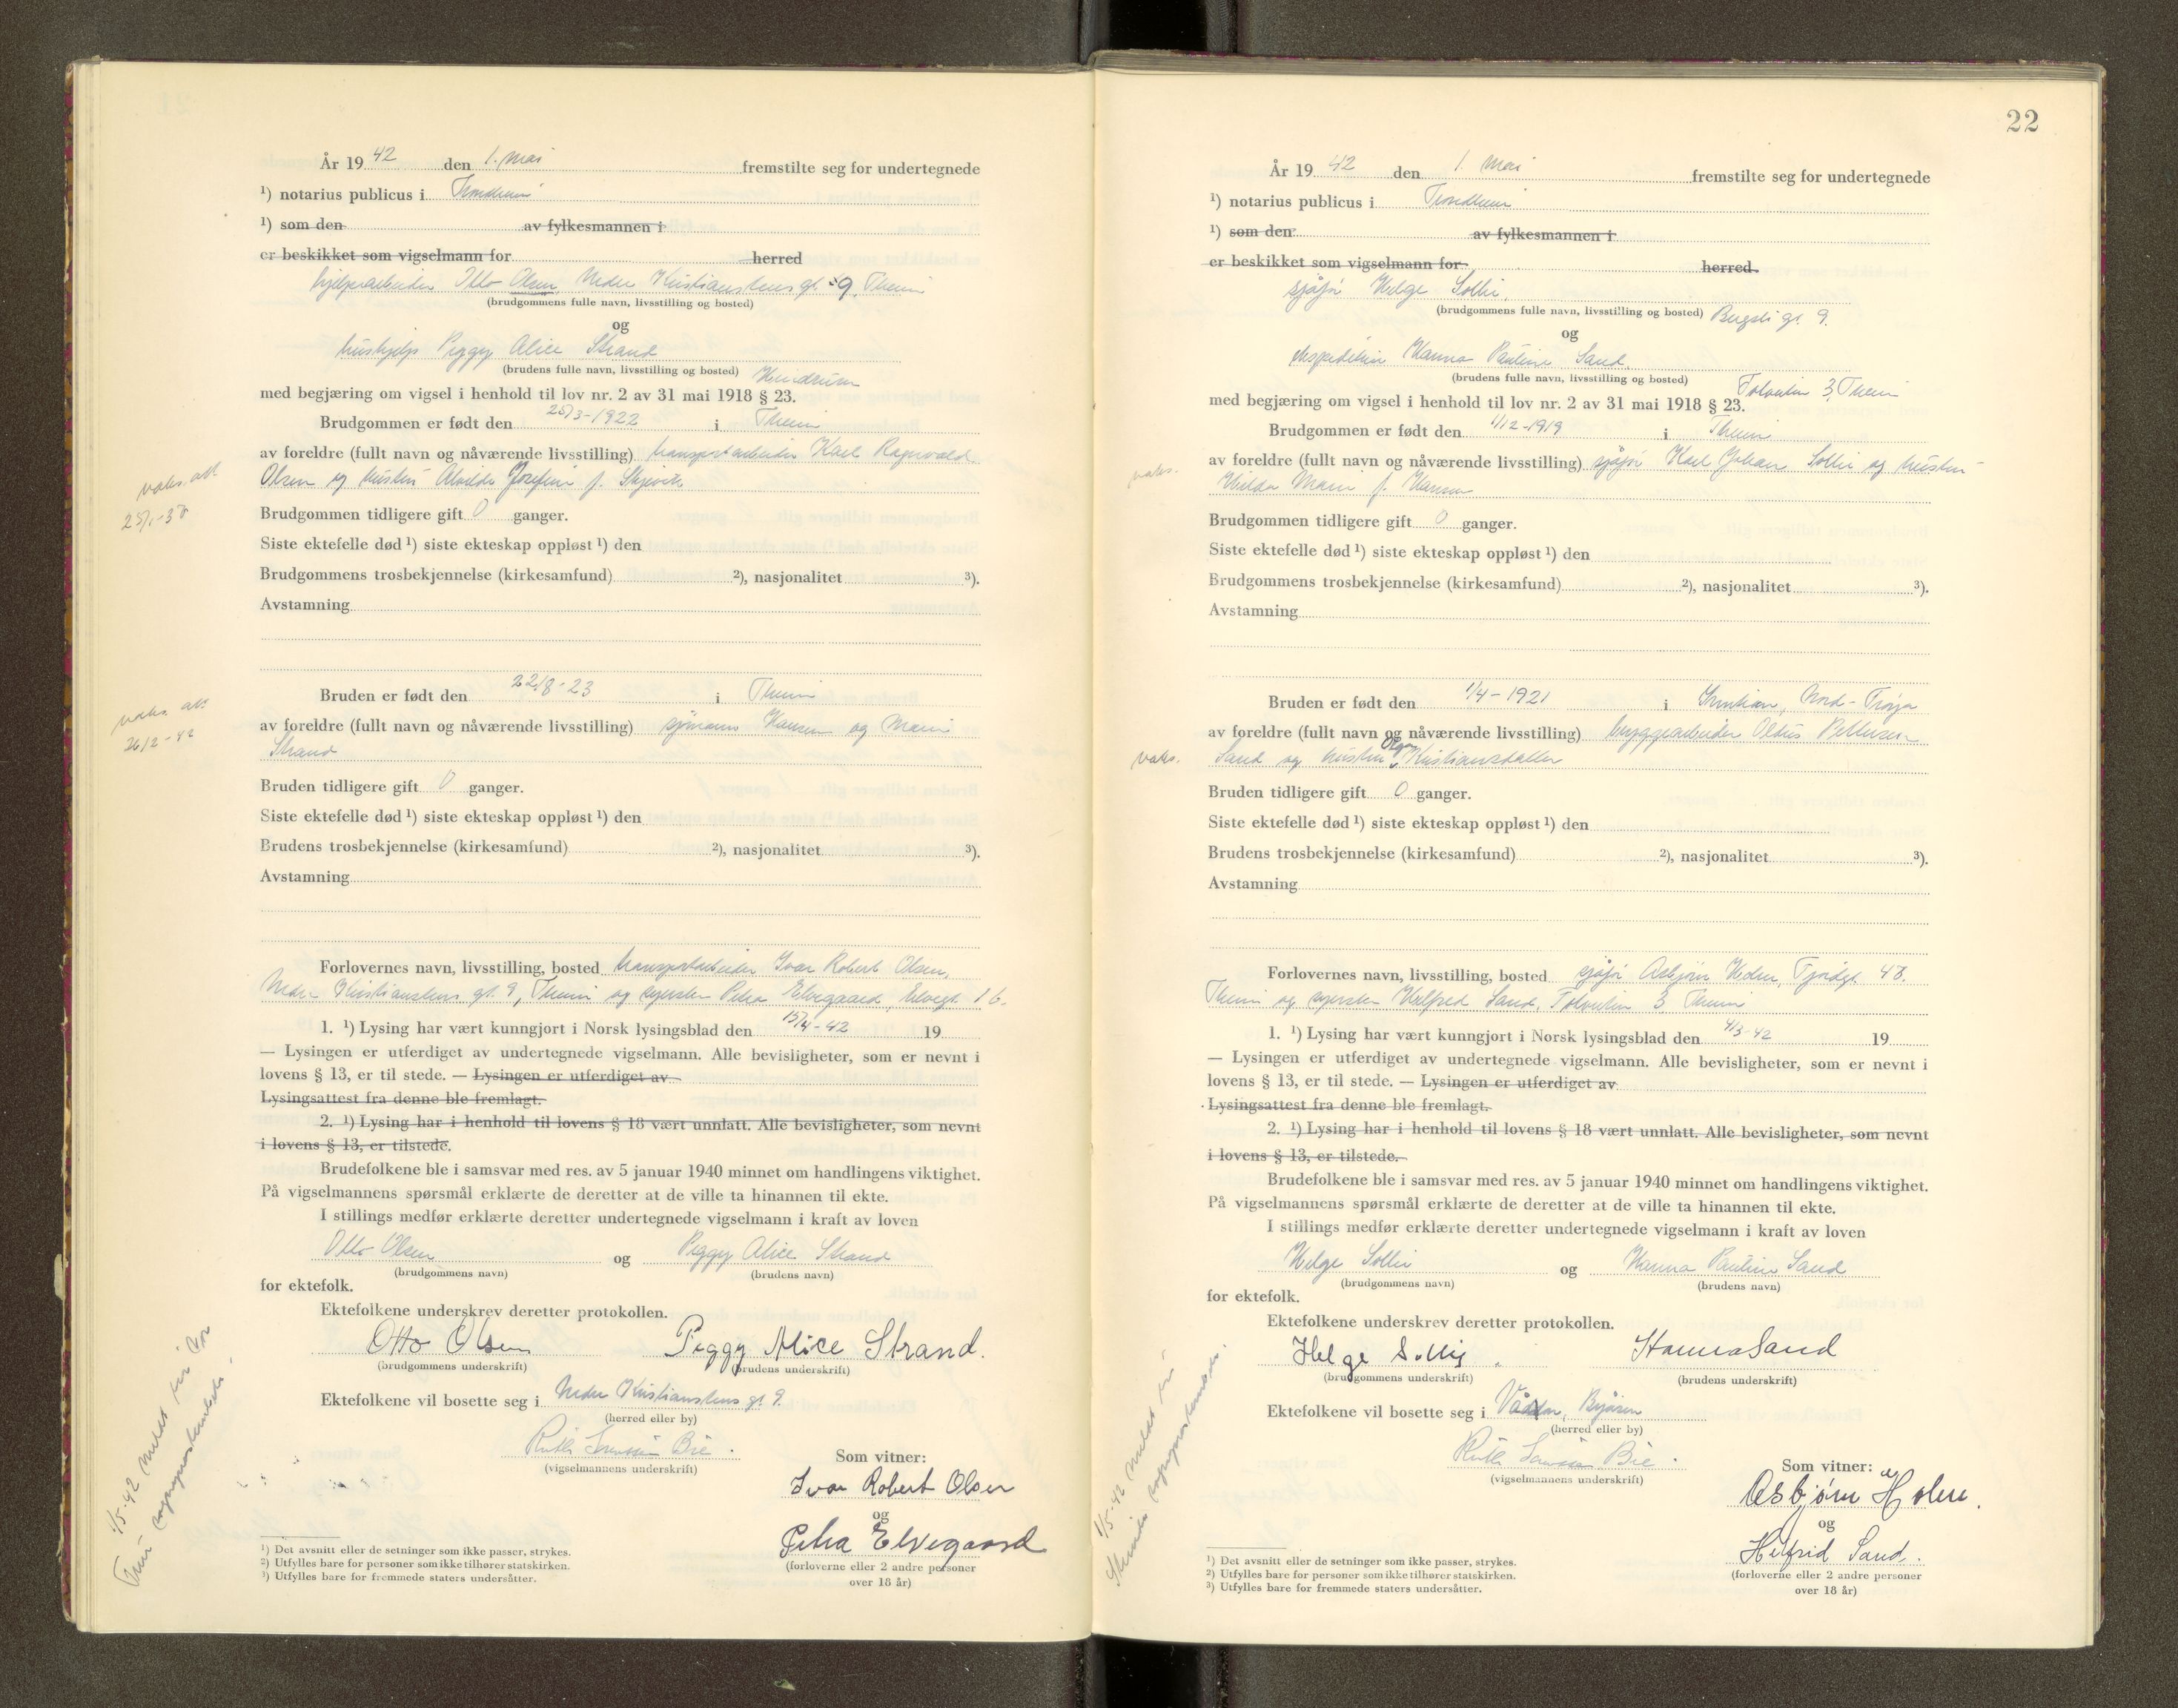 År 19 42 den 1. mai fremstilte seg for undertegnede
¹) notarius publicus i Trondheim
¹) som den av fylkesmannen i
er beskikket som vigselmann for herred
hjelpearbeider Otto Olsen, Nedre Kristianstens gt. 9, Theim
(brudgommens fulle navn, livsstilling og bosted)
og
hushjelp Peggy Alice Strand
(brudens fulle navn, livsstilling og bosted)
med begjæring om vigsel i henhold til lov nr. 2 av 31 mai 1918 § 23.
Brudgommen er født den 25/3-1922 i Theim
av foreldre (fullt navn og nåværende livsstilling) transportarbeider Karl Ragnvald
Olsen og hustru Alvilde Josefine f.
vaks. att
Brudgommen tidligere gift 0 ganger.
Siste ektefelle død ¹) siste ekteskap oppløst ¹) den
Brudgommens trosbekjennelse (kirkesamfund) ²), nasjonalitet ³).
Avstamning
Bruden er født den 22/8-23 i Theim
vaks. att
26/2-42
av foreldre (fullt navn og nåværende livsstilling) sjømann Hansen og Marie
Strand
Bruden tidligere gift 0 ganger.
Siste ektefelle død ¹) siste ekteskap oppløst ¹) den
Brudens trosbekjennelse (kirkesamfund) ²), nasjonalitet ³).
Avstamning
Forlovernes navn, livsstilling, bosted transportarbeider Ivar Robert Olsen,
Nedre Kristianstens gt. 9, Theim og syerske Petra Elvegaard, Elvegt. 16.
1. ¹) Lysing har vært kunngjort i Norsk lysingsblad den 15/4-42 19
— Lysingen er utferdiget av undertegnede vigselmann. Alle bevisligheter, som er nevnt i
lovens § 13, er til stede. — Lysingen er utferdiget av
Lysingsattest fra denne ble fremlagt.
2. ¹) Lysing har i henhold til lovens § 18 vært unnlatt. Alle bevisligheter, som nevnt
i lovens § 13, er tilstede.
Brudefolkene ble i samsvar med res. av 5 januar 1940 minnet om handlingens viktighet.
På vigselmannens spørsmål erklærte de deretter at de ville ta hinannen til ekte.
I stillings medfør erklærte deretter undertegnede vigselmann i kraft av loven
Otto Olsen og Peggy Alice Strand
(brudgommens navn) (brudens navn)
for ektefolk.
Ektefolkene underskrev deretter protokollen.
Otto Olsen Peggy Alice Strand.
(brudgommens underskrift) (brudens underskrift)
Ektefolkene vil bosette seg i Nedre Kristianstens gt 9.
(herred eller by)
Ruth Bie.
(vigselmannens underskrift)
Som vitner:
Ivar Robert Olsen
og
Petra Elvegaard
(forloverne eller 2 andre personer
over 18 år)
1/5-42 meldt til
¹) Det avsnitt eller de setninger som ikke passer, strykes.
²) Utfylles bare for personer som ikke tilhører statskirken.
³) Utfylles bare for fremmede staters undersåtter.
22
År 19 42 den 1. mai fremstilte seg for undertegnede
¹) notarius publicus i Trondheim
¹) som den av fylkesmannen i
er beskikket som vigselmann for herred
sjåfør Helge Solli,
(brudgommens fulle navn, livsstilling og bosted) gt. 9.
og
ekspeditrise Hanna Pauline Sand,
(brudens fulle navn, livsstilling og bosted)
3, Theim
med begjæring om vigsel i henhold til lov nr. 2 av 31 mai 1918 § 23.
Brudgommen er født den 1/12-1919 i Theim
av foreldre (fullt navn og nåværende livsstilling) sjåfør Karl Johan Solli og hustru
vaks.
Hilda Marie f. Hansen
Brudgommen tidligere gift 0 ganger.
Siste ektefelle død ¹) siste ekteskap oppløst ¹) den
Brudgommens trosbekjennelse (kirkesamfund) ²), nasjonalitet ³).
Avstamning
Bruden er født den 1/4-1921 i
av foreldre (fullt navn og nåværende livsstilling) bryggearbeider Oldus Pettersen
vaks.
Sand og hustru Olga f. Kristiansdatter
Bruden tidligere gift 0 ganger.
Siste ektefelle død ¹) siste ekteskap oppløst ¹) den
Brudens trosbekjennelse (kirkesamfund) ²), nasjonalitet ³).
Avstamning
Forlovernes navn, livsstilling, bosted sjåfør Asbjørn 48.
Theim og syerske Helfred Sand, 3 Theim
1. ¹) Lysing har vært kunngjort i Norsk lysingsblad den 4/3-42 19
— Lysingen er utferdiget av undertegnede vigselmann. Alle bevisligheter, som er nevnt i
lovens § 13, er til stede. — Lysingen er utferdiget av
Lysingsattest fra denne ble fremlagt.
2. ¹) Lysing har i henhold til lovens § 18 vært unnlatt. Alle bevisligheter, som nevnt
i lovens § 13, er tilstede.
Brudefolkene ble i samsvar med res. av 5 januar 1940 minnet om handlingens viktighet.
På vigselmannens spørsmål erklærte de deretter at de ville ta hinannen til ekte.
I stillings medfør erklærte deretter undertegnede vigselmann i kraft av loven
Helge Solli og Hanna Pauline Sand
(brudgommens navn) (brudens navn)
for ektefolk.
Ektefolkene underskrev deretter protokollen.
Helge Solli. Hanna Sand
(brudgommens underskrift) (brudens underskrift)
Ektefolkene vil bosette seg i
(herred eller by)
Ruth Bie.
(vigselmannens underskrift)
Som vitner:
Asbjørn
og
Helfrid Sand.
(forloverne eller 2 andre personer
over 18 år)
1/5-42 meldt til
¹) Det avsnitt eller de setninger som ikke passer, strykes.
²) Utfylles bare for personer som ikke tilhører statskirken.
³) Utfylles bare for fremmede staters undersåtter.